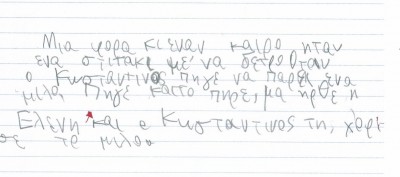 Μια φορα κι εναν καιρο ηταν
ενα σπιτακι με' να δετρο Οταν
ο Κωσταντινος πηγε να παρει ενα
μιλο, πηγε και το πηρε, μα ηρθε η
Ελενη και ο Κωσταντινος τη, χαρι
σε το μιλο